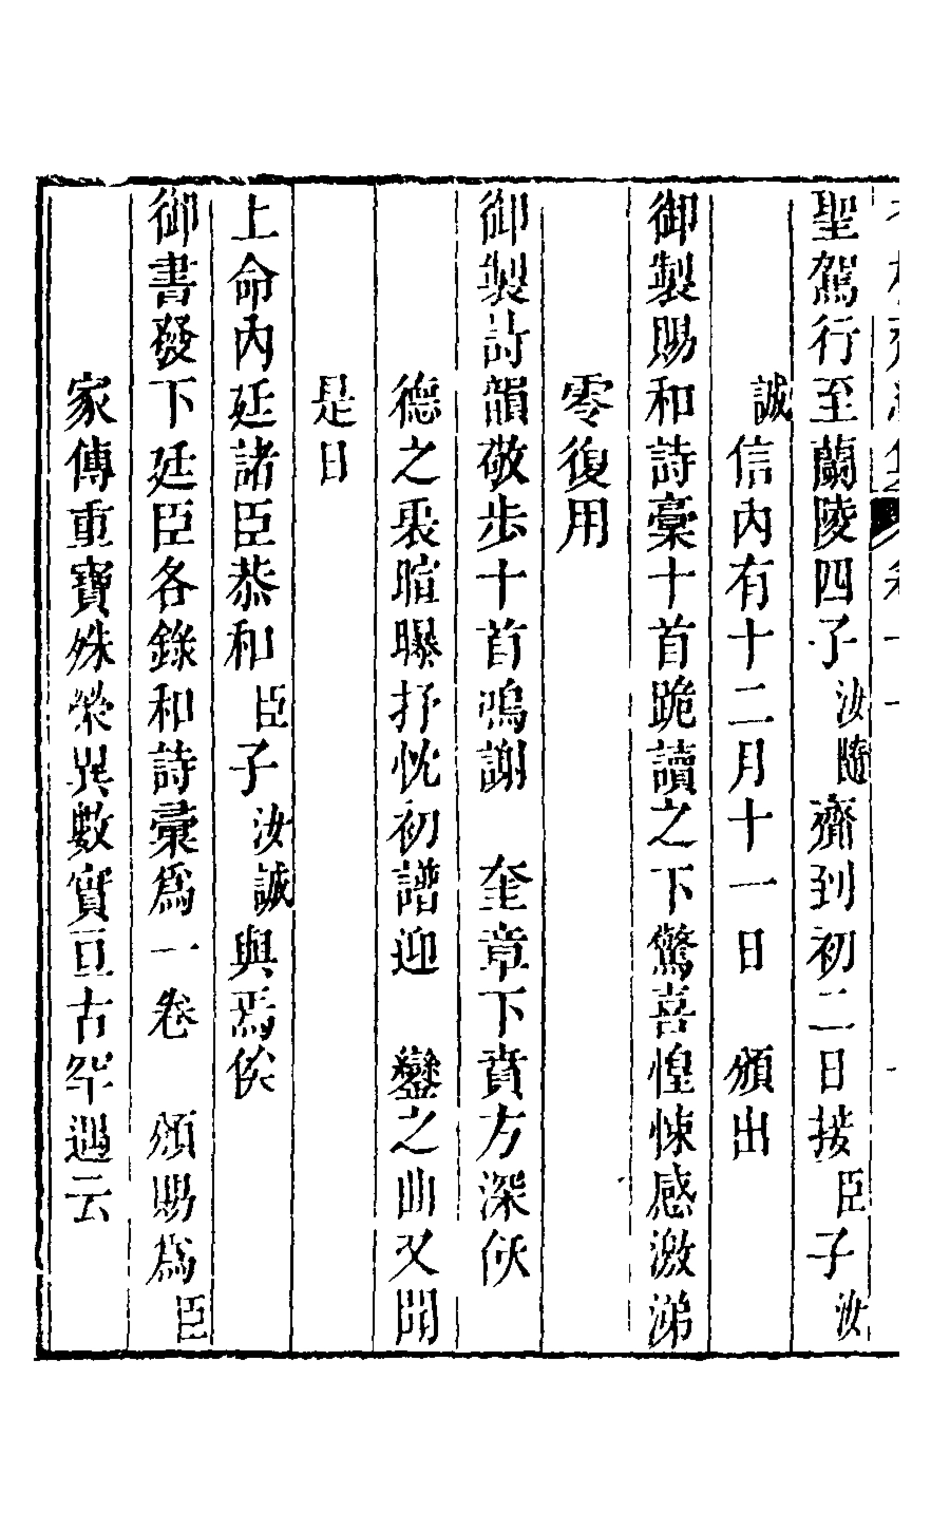 聖駕行至蘭陵四子汝隨齊到初二日接臣子汝
誠信內有十二月十一日　頒出
御製賜和詩稾十首跪讀之下驚喜惶悚感激涕
零復用
御製詩韻敬步十首鴻謝　奎章下賁方深伏
德之衷暄曝抒忱初譜迎　鑾之曲又聞
是日
上命內廷諸臣恭和臣子汝誠與焉俟
御書發下廷臣各錄和詩稾爲一卷　頒賜爲臣
家傳重寶殊榮異數實亘古罕遇云